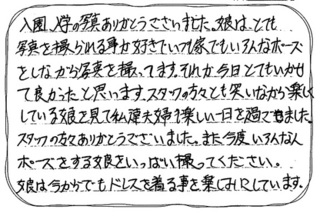 入園、入学の写真ありがとうございました。娘は、とても
写真を撮られる事が好きでいつも家でもいろんなポーズ
をしながら写真を撮ってます。それが今日とてもいかせ
て良かったと思います。スタッフの方々とも笑いながら楽しく
している娘を見て私達夫婦も楽しい一日を過できました。
スタッフの方々ありがとうございました。また今度いろんな
ポーズをする娘をいっぱい撮ってください。
娘は今からでもドレスを着る事を楽しみにしています。